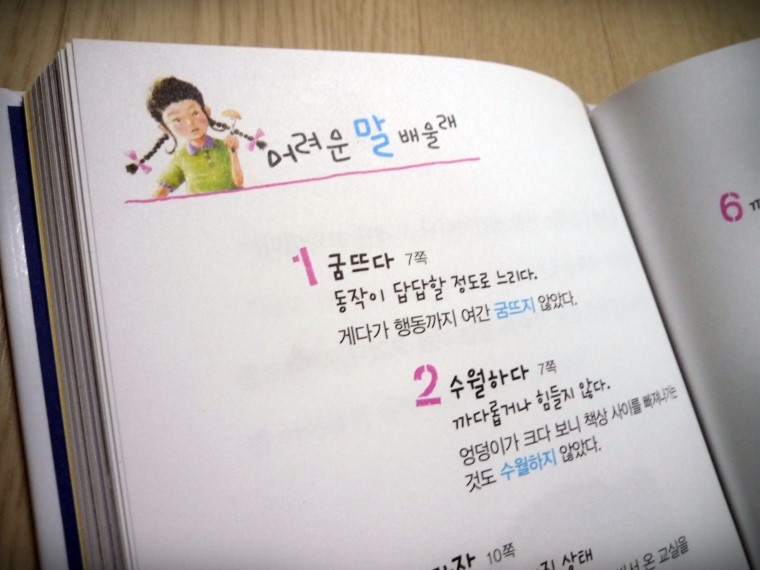 어려운 말 배울래
1 굼뜨다 7쪽
동작이 답답할 정도로 느리다.
게다가 행동까지 여간 굼뜨지 않았다.
2 수월하다 7쪽
까다롭거나 힘들지 않다.
엉덩이가 크다 보니 책상 사이를 빠져나가는
것도 수월하지 않았다.
10쪽
상태
온 교실을
6